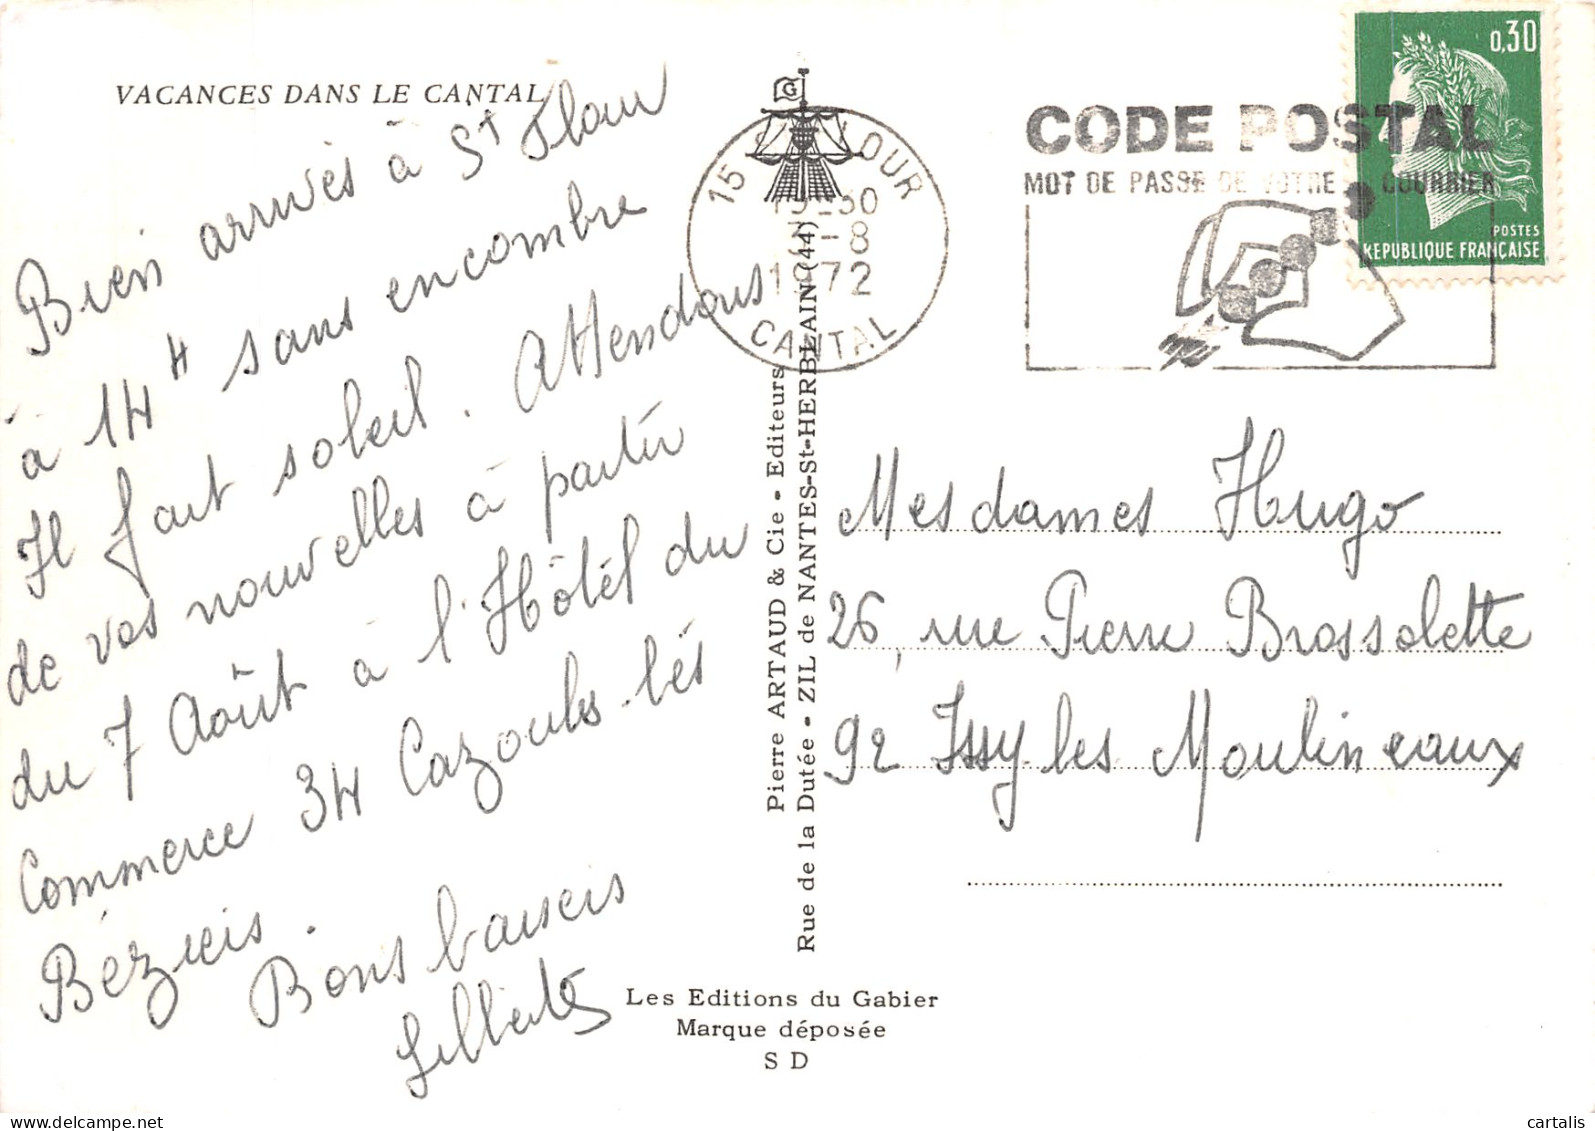 VACANCES DANS LE CANTAL
Bien arrivés à St Flour
à 14H sans encombre
Il fait soleil. Attendons
de vos nouvelles à partir
du 7 Août à l'Hôtel du
Commerce 34 Cazouls-lès
Béziers. Bons baisers
Gilberte
Pierre ARTAUD & Cie - Editeurs
Rue de la Dutée - ZIL de NANTES-St-HERBLAIN (44)
Les Editions du Gabier
Marque déposée
S D
G
15 LOUR
-8
1972
CANTAL
CODE POSTAL
MOT DE PASSE DE VOTRE COURRIER
0,30
POSTES
REPUBLIQUE FRANÇAISE
Mesdames Hugo
26, rue Pierre Brossolette
92 Issy les Moulineaux
cartalis
delcampe.net